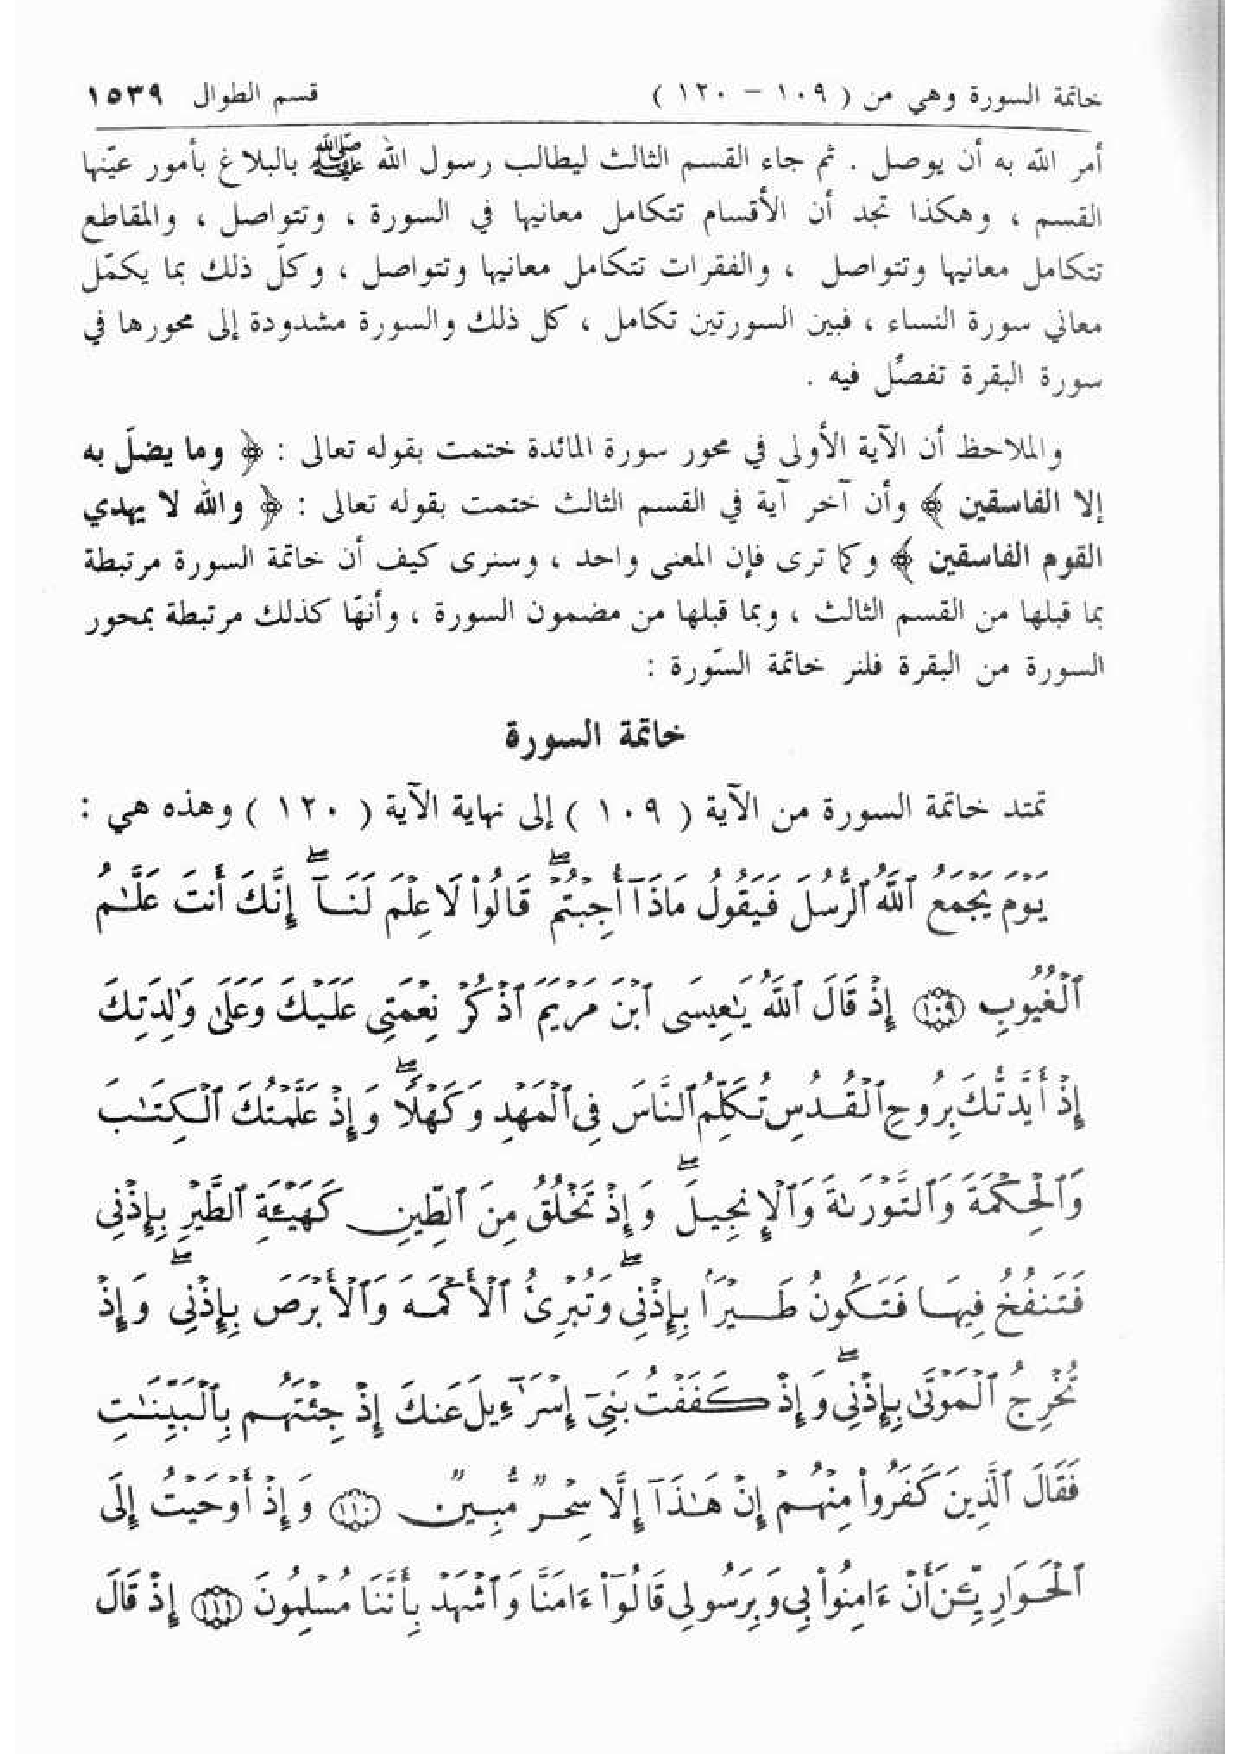 خاتمة السورة وهي من ( ١٠٩ – ١٢٠ ) قسم الطوال ١٥٣٩
أمر الله به أن يوصل . ثم جاء القسم الثالث ليطالب رسول الله ﷺ بالبلاغ بأمور عيّنها
القسم ، وهكذا تجد أن الأقسام تتكامل معانيها في السورة ، وتتواصل ، والمقاطع
تتكامل معانيها وتتواصل ، والفقرات تتكامل معانيها وتتواصل ، وكلّ ذلك بما يكمّل
معاني سورة النساء ، فبين السورتين تكامل ، كل ذلك والسورة مشدودة إلى محورها في
سورة البقرة تفصّل فيه .
والملاحظ أن الآية الأولى في محور سورة المائدة ختمت بقوله تعالى : ﴿ وما يضلّ به
إلا الفاسقين ﴾ وأن آخر آية في القسم الثالث ختمت بقوله تعالى : ﴿ والله لا يهدي
القوم الفاسقين ﴾ وكما ترى فإن المعنى واحد ، وسنرى كيف أن خاتمة السورة مرتبطة
بما قبلها من القسم الثالث ، وبما قبلها من مضمون السورة ، وأنهّا كذلك مرتبطة بمحور
السورة من البقرة فلنر خاتمة السّورة :
خاتمة السورة
تمتد خاتمة السورة من الآية ( ١٠٩ ) إلى نهاية الآية ( ١٢٠ ) وهذه هي :
يَوْمَ يَجْمَعُ ٱللَّهُ ٱلرُّسُلَ فَيَقُولُ مَاذَآ أُجِبْتُمْ ۖ قَالُوا۟ لَا عِلْمَ لَنَآ ۖ إِنَّكَ أَنتَ عَلَّـٰمُ
ٱلْغُيُوبِ ١٠٩ إِذْ قَالَ ٱللَّهُ يَـٰعِيسَى ٱبْنَ مَرْيَمَ ٱذْكُرْ نِعْمَتِى عَلَيْكَ وَعَلَىٰ وَٰلِدَتِكَ
إِذْ أَيَّدتُّكَ بِرُوحِ ٱلْقُدُسِ تُكَلِّمُ ٱلنَّاسَ فِى ٱلْمَهْدِ وَكَهْلًا ۖ وَإِذْ عَلَّمْتُكَ ٱلْكِتَـٰبَ
وَٱلْحِكْمَةَ وَٱلتَّوْرَىٰةَ وَٱلْإِنجِيلَ ۖ وَإِذْ تَخْلُقُ مِنَ ٱلطِّينِ كَهَيْـَٔةِ ٱلطَّيْرِ بِإِذْنِى
فَتَنفُخُ فِيهَا فَتَكُونُ طَيْرًۢا بِإِذْنِى ۖ وَتُبْرِئُ ٱلْأَكْمَهَ وَٱلْأَبْرَصَ بِإِذْنِى ۖ وَإِذْ
تُخْرِجُ ٱلْمَوْتَىٰ بِإِذْنِى ۖ وَإِذْ كَفَفْتُ بَنِىٓ إِسْرَٰٓءِيلَ عَنكَ إِذْ جِئْتَهُم بِٱلْبَيِّنَـٰتِ
فَقَالَ ٱلَّذِينَ كَفَرُوا۟ مِنْهُمْ إِنْ هَـٰذَآ إِلَّا سِحْرٌ مُّبِينٌ ١١٠ وَإِذْ أَوْحَيْتُ إِلَى
ٱلْحَوَارِيِّـۧنَ أَنْ ءَامِنُوا۟ بِى وَبِرَسُولِى قَالُوٓا۟ ءَامَنَّا وَٱشْهَدْ بِأَنَّنَا مُسْلِمُونَ ١١١ إِذْ قَالَ